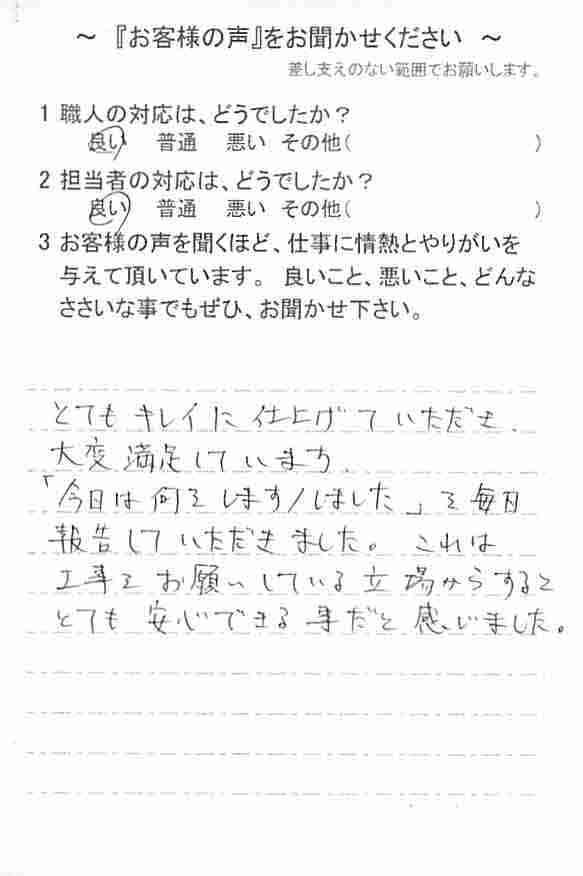 ～ 『お客様の声』をお聞かせください ～
差し支えのない範囲でお願いします。
1 職人の対応は、どうでしたか？
良い 普通 悪い その他( )
2 担当者の対応は、どうでしたか？
良い 普通 悪い その他( )
3 お客様の声を聞くほど、仕事に情熱とやりがいを
与えて頂いています。 良いこと、悪いこと、どんな
ささいな事でもぜひ、お聞かせ下さい。
とてもキレイに仕上げていただき、
大変満足しています。
「今日は何をします/しました」を毎日
報告していただきました。これは
工事をお願いしている立場からすると
とても安心できる事だと感じました。